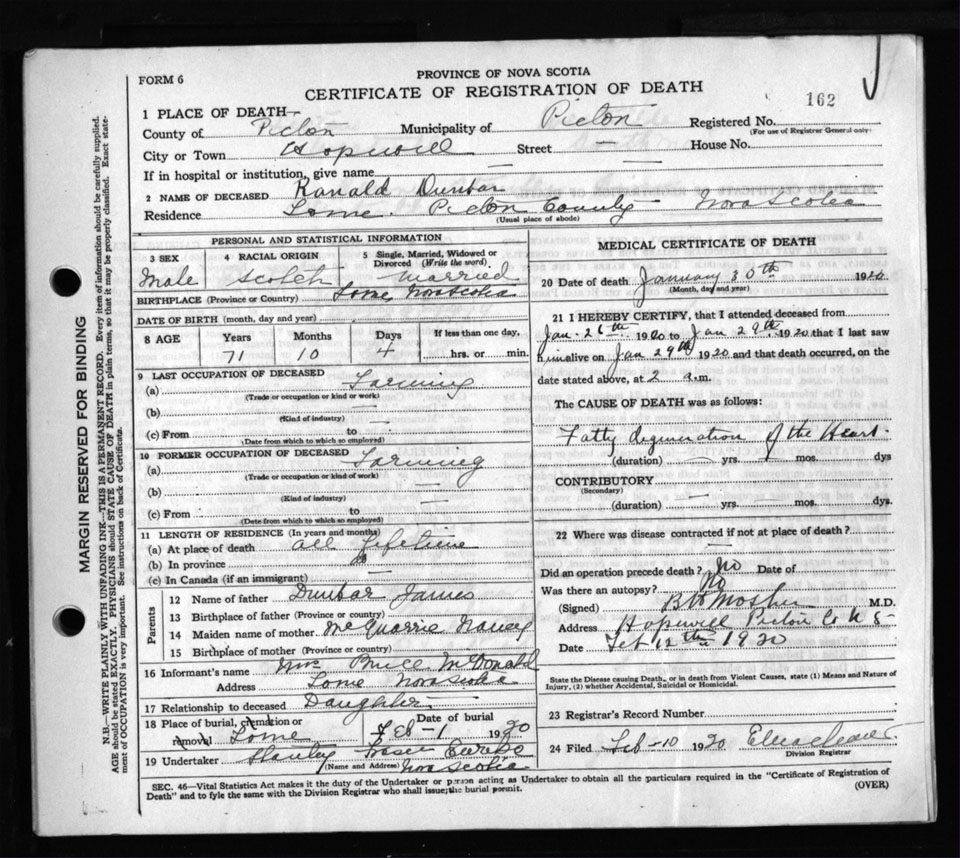 PROVINCE OF NOVA SCOTIA
FORM 6
CERTIFICATE OF REGISTRATION OF DEATH
162
1 PLACE OF DEATH—
County of Picton Municipality of Picton Registered No.
(For use of Registrar General only)
City or Town Hopwill Street — House No.
If in hospital or institution, give name —
2 NAME OF DECEASED Ronald Dunbar
Residence Lorne. Picton County Nova Scotia
(Usual place of abode)
PERSONAL AND STATISTICAL INFORMATION
3 SEX 4 RACIAL ORIGIN 5 Single, Married, Widowed or Divorced (Write the word)
Male Scotch Married
BIRTHPLACE (Province or Country) Lorne Nova Scotia
DATE OF BIRTH (month, day and year)
8 AGE Years Months Days If less than one day,
71 10 4 hrs. or min.
9 LAST OCCUPATION OF DECEASED
(a) Farming
(Trade or occupation or kind or work)
(b) —
(Kind of industry)
(c) From to —
(Date from which to which so employed)
10 FORMER OCCUPATION OF DECEASED
(a) Farming
(Trade or occupation or kind of work)
(b) —
(Kind of industry)
(c) From to —
(Date from which to which so employed)
11 LENGTH OF RESIDENCE (In years and months)
(a) At place of death all lifetime
(b) In province
(c) In Canada (if an immigrant)
Parents
12 Name of father Dunbar James
13 Birthplace of father (Province or country)
14 Maiden name of mother McQuarrie Nancy
15 Birthplace of mother (Province or Country)
16 Informant's name Mrs Bruce McDonald
Address Lorne Nova Scotia
17 Relationship to deceased Daughter
18 Place of burial, cremation or removal Lorne Date of burial Feb - 1 1920
19 Undertaker Stanley Fraser Eureka
(Name and Address) Nova Scotia
MEDICAL CERTIFICATE OF DEATH
20 Date of death January 30th 1920
(Month, day and year)
21 I HEREBY CERTIFY, that I attended deceased from
Jan. 26th 1920 to Jan 29th 1920 that I last saw
him alive on Jan 29th 1920 and that death occurred, on the
date stated above, at 2 a.m.
The CAUSE OF DEATH was as follows:
Fatty Degeneration of the Heart.
(duration) — yrs. mos. dys
CONTRIBUTORY —
(Secondary)
(duration) — yrs. mos. dys.
22 Where was disease contracted if not at place of death?
—
Did an operation precede death? No Date of
Was there an autopsy? No
(Signed) M.D.
Address Hopewill Picton Co N S-
Date Feb 12th 1920
State the Disease causing Death, or in death from Violent Causes, state (1) Means and Nature of
Injury, (2) whether Accidental, Suicidal or Homicidal.
23 Registrar's Record Number
24 Filed Feb-10 1920
Division Registrar
SEC. 46—Vital Statistics Act makes it the duty of the Undertaker or person acting as Undertaker to obtain all the particulars required in the "Certificate of Registration of
Death" and to fyle the same with the Division Registrar who shall issue the burial permit. (OVER)
MARGIN RESERVED FOR BINDING
N.B.—WRITE PLAINLY WITH UNFADING INK—THIS IS A PERMANENT RECORD. Every item of information should be carefully supplied.
AGE should be stated EXACTLY. PHYSICIANS should STATE CAUSE OF DEATH in plain terms, so that it may be properly classified. Exact state-
ment of OCCUPATION is very important. See instructions on back of Certificate.